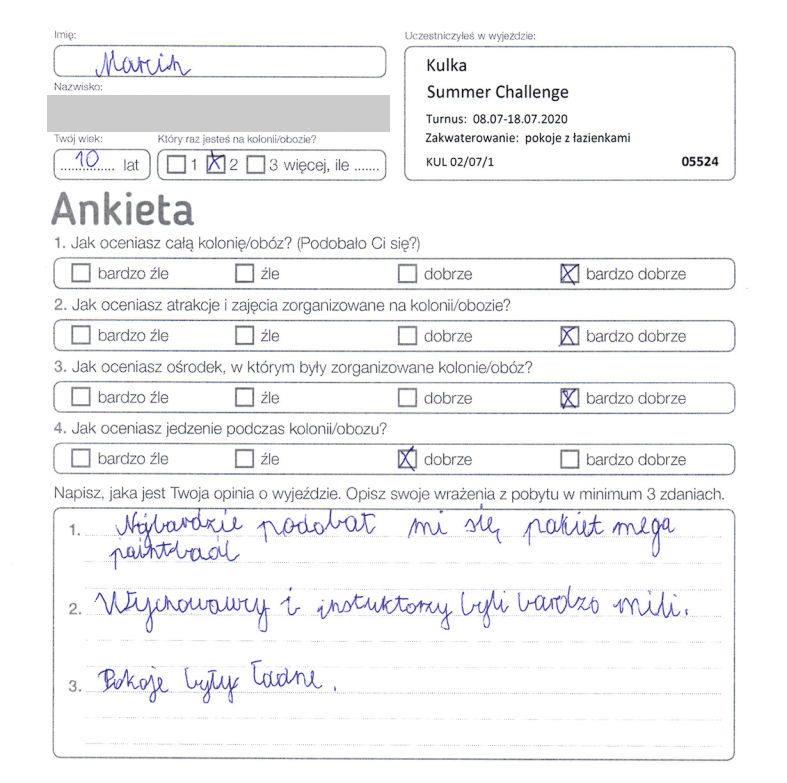 Imię:
Marcin
Nazwisko:
Twój wiek:
Który raz jesteś na kolonii/obozie?
10 lat
1 2 3 więcej, ile .......
Uczestniczyłeś w wyjeździe:
Kulka
Summer Challenge
Turnus: 08.07-18.07.2020
Zakwaterowanie: pokoje z łazienkami
KUL 02/07/1 05524
Ankieta
1. Jak oceniasz całą kolonię/obóz? (Podobało Ci się?)
bardzo źle źle dobrze bardzo dobrze
2. Jak oceniasz atrakcje i zajęcia zorganizowane na kolonii/obozie?
bardzo źle źle dobrze bardzo dobrze
3. Jak oceniasz ośrodek, w którym były zorganizowane kolonie/obóz?
bardzo źle źle dobrze bardzo dobrze
4. Jak oceniasz jedzenie podczas kolonii/obozu?
bardzo źle źle dobrze bardzo dobrze
Napisz, jaka jest Twoja opinia o wyjeździe. Opisz swoje wrażenia z pobytu w minimum 3 zdaniach.
1. Najbardzie podobał mi się pakiet mega
paintbaal
2. Wychowawcy i instuktorzy byli bardzo mili.
3. Pokoje były ładne.